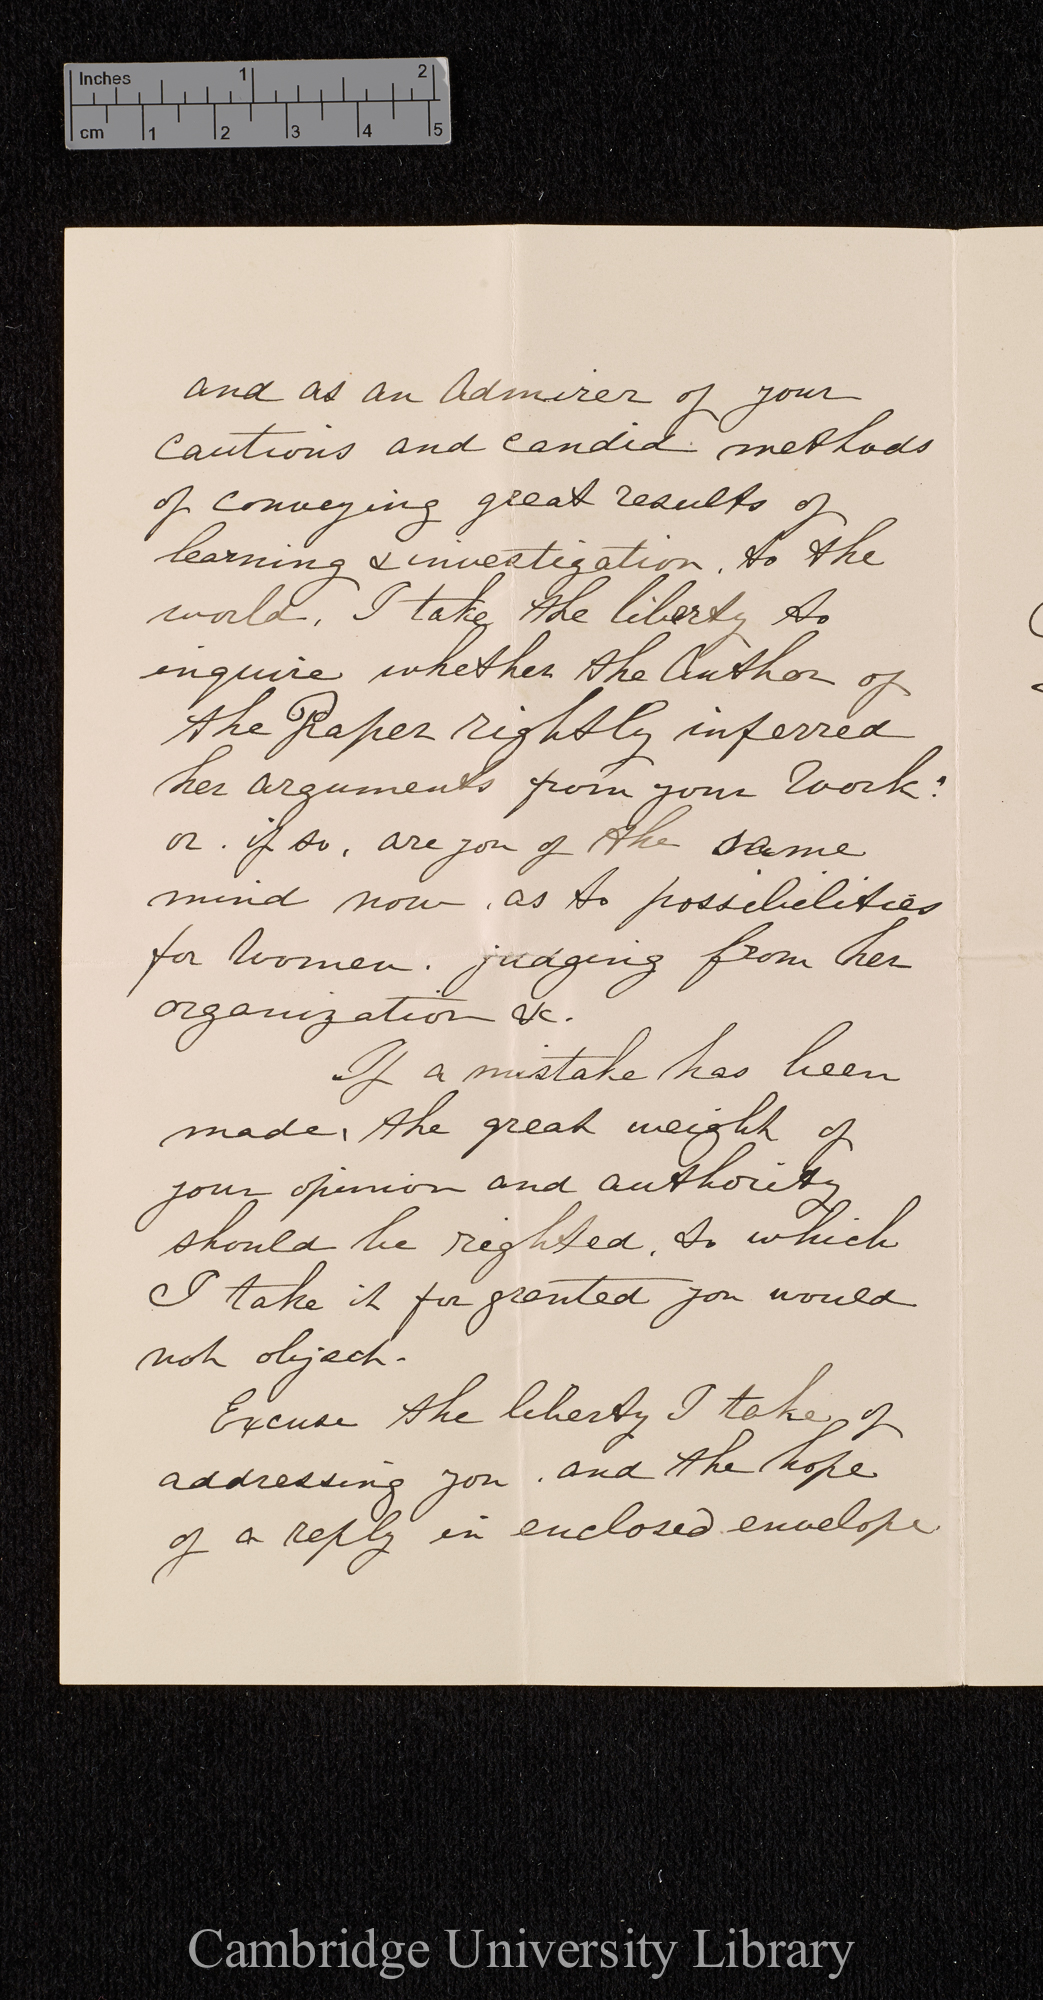 Inches 1 2
cm 1 2 3 4 5
and as an Admirer of your
cautious and candid methods
of conveying great results of
learning & investigation, to the
world, I take the liberty to
inquire whether the Author of
the Paper rightly inferred
her arguments from your Work?
or. if so, are you of the same
mind now, as to possibilities
for Women. judging from her
organization &c.
If a mistake has been
made, the great weight of
your opinion and authority
should be righted, to which
I take it for granted you would
not object.
Excuse the liberty I take of
addressing you, and the hope
of a reply in enclosed envelope
Cambridge University Library